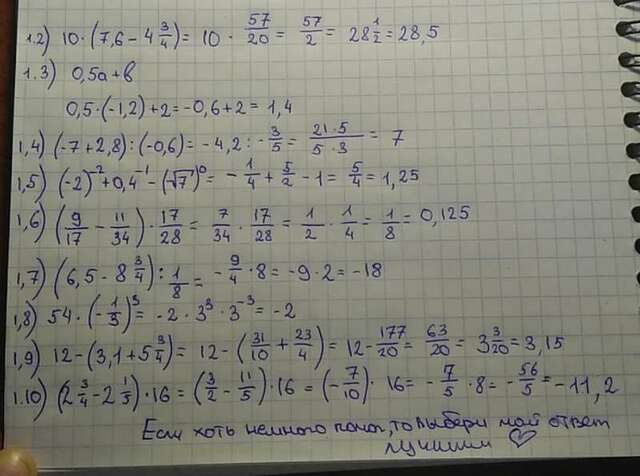 1.2) 10·(7,6 - 4 3/4) = 10 · 57/20 = 57/2 = 28 1/2 = 28,5
1.3) 0,5a+b
0,5·(-1,2)+2=-0,6+2=1,4
1,4) (-7+2,8):(-0,6)=-4,2:-3/5=21·5/5·3=7
1,5) (-2)^-2+0,4^-1-(√7)^0=-1/4+5/2-1=5/4=1,25
1,6) (9/17-11/34)·17/28=7/34·17/28=1/2·1/4=1/8=0,125
1,7) (6,5-8 3/4):1/8=-9/4·8=-9·2=-18
1,8) 54·(-1/3)^3=-2·3^3·3^-3=-2
1,9) 12-(3,1+5 3/4)=12-(31/10+23/4)=12-177/20=63/20=3 3/20=3,15
1.10) (2 3/4-2 1/5)·16=(3/2-11/5)·16=(-7/10)·16=-7/5·8=-56/5=-11,2
Если хоть немного помог, то выбери мой ответ
лучшим ♡